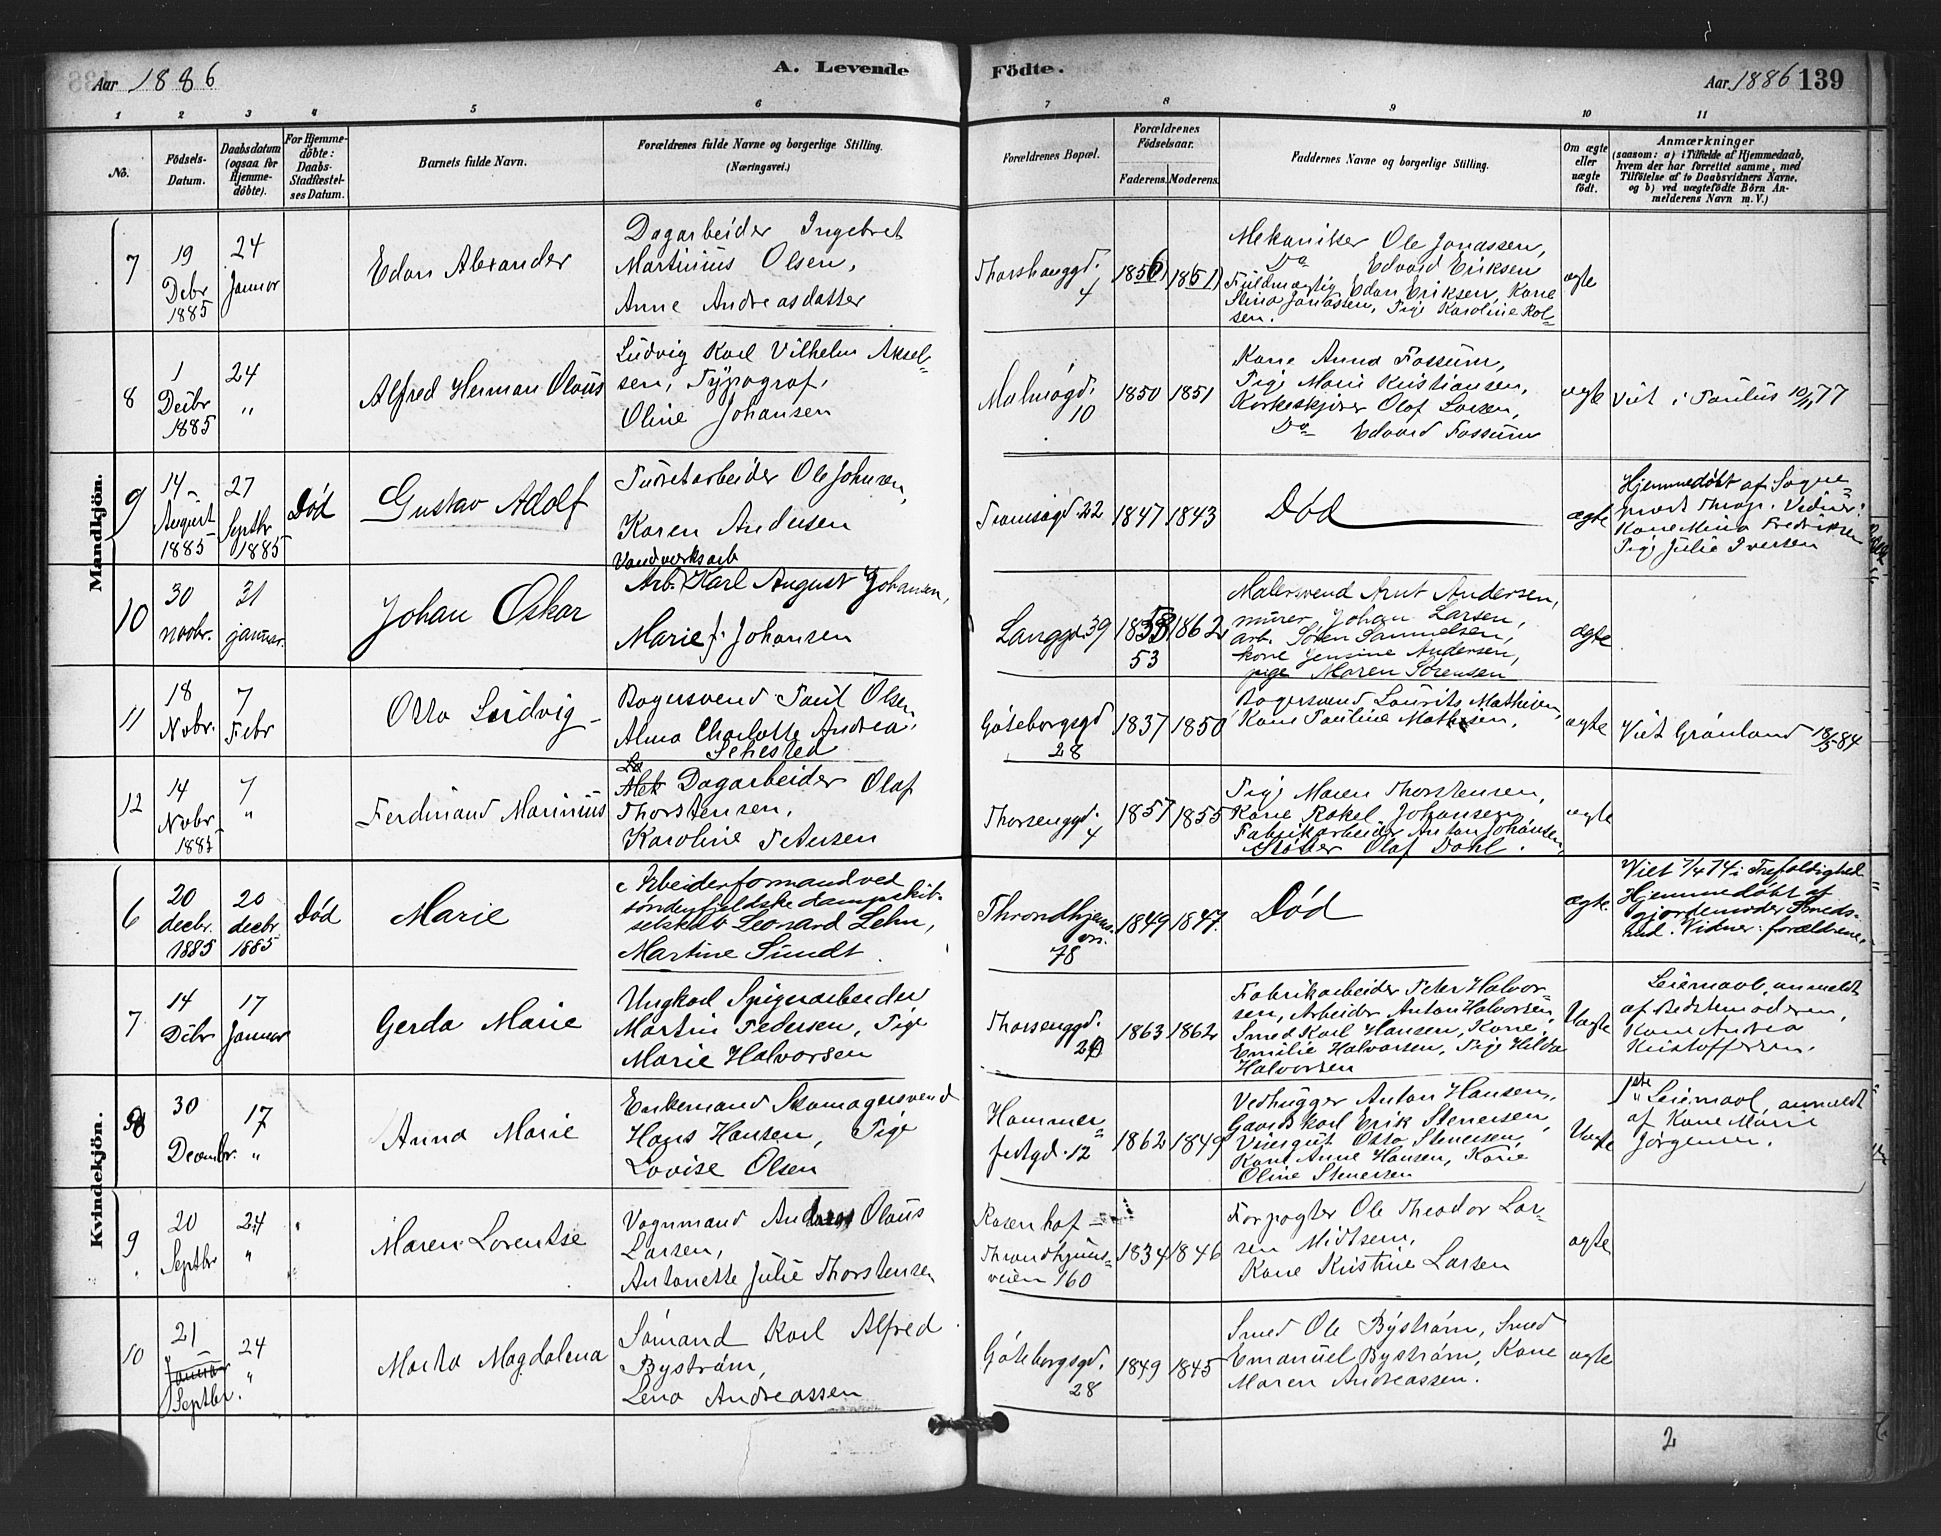 Aar 1886
A. Levende
Födte.
Aar 1886 139
1 2 3 4 5 6 7 8 9 10 11
No.
Födsels-Datum.
Daabsdatum (ogsaa for Hjemme-döbte).
For Hjemme-döbte: Daabs-Stadfæstel-ses Datum.
Barnets fulde Navn.
Forældrenes fulde Navne og borgerlige Stilling.
(Næringsvei.)
Forældrenes Bopæl.
Forældrenes Födselsaar.
Faderens. Moderens.
Faddernes Navne og borgerlige Stilling.
Om ægte eller uægte födt.
Anmærkninger
(saasom: a) i Tilfælde af Hjemmedaab, hvem der har forrettet samme, med Tilföielse af to Daabsvidners Navne, og b) ved uægtefödte Börn An-melderens Navn m. V.)
Mandkjön.
7
19 Debr 1885
24 Januar
Edon Alexander
Dagarbeider Ingebret
Martinius Olsen,
Anne Andreasdatter
Thorshauggd. 4
1856 1851
Mekaniker Ole Jonassen,
Do Edvard Eriksen
Fuldmægtig Edon Eriksen, Kone
Stina Jonassen, Pige Karoline Rol-
sen.
ægte
8
1 Debr 1885
24 "
Alfred Herman Olaus
Ludvig Karl Vilhelm Aksel-
sen, Typograf,
Oline Johansen
Malmøgd. 10
1850 1851
Kone Anna Fossum,
Pige Marie Kristiansen,
Korkeskjærer Olaf Larsen,
Do Edvard Fossum
ægte
Viet i Paulus 10/11 77
9
14 August 1885
27 Septbr 1885
Død
Gustav Adolf
Turetarbeider Ole Johnsen,
Karen Andersen
Tromsøgd 22
1847 1843
Død
ægte
Hjemmedøbt af Sogne-
prest Thrap. Vidner:
Kone Mina Fredriksen
Pige Julie Iversen
10
30 novbr.
31 januar.
Johan Oskar
Vandværksarb
Arb. Karl August Johansen,
Marie f. Johansen
Langgd 39
1853 1862
53
Malersvend Arnt Andersen,
murer Johan Larsen,
arb. Søren Samuelsen,
kone Jensine Andersen,
pige Maren Sørensen
ægte
11
18 Novbr.
7 Febr
Otto Ludvig
Bagersvend Paul Olsen
Alma Charlotte Andrea
Sehested
Göteborgsgd 28
1837 1850
Bagersvend Laurits Mathisen,
Kone Pauline Mathisen,
ægte
Viet Grønland 18/5 84
12
14 Novbr 1885
7 "
Ferdinand Marinius
Dagarbeider Olaf
Thorstensen,
Karoline Petersen
Thorsenggd. 4
1857 1855
Pige Maren Thorstensen,
Kone Rakel Johansen
Fabrikarbeider Anton Johansen,
Støber Olaf Dahl.
ægte
Kvindekjön.
6
20 decbr. 1885
20 decbr 1885
Død
Marie
Arbeiderformand ved
søndenfjeldske dampskib-
selskab Leonard Lehn,
Martine Sundt
Throndhjems-vn. 78
1849 1847
Død
ægte
Viet 7/4 74 i Trefoldighed-
Hjemmedøbt af
gjordemoder Smeds-
rud. Vidner: forældrene.
7
14 Debr
17 Januar
Gerda Marie
Ungkarl Spigerarbeider
Martin Pedersen, Pige
Marie Halvorsen
Thorsenggd. 20
1863 1862
Fabrikarbeider Peter Halvor-
sen, Arbeider Anton Halvorsen,
Smed Karl Hansen, Kone
Emilie Halvorsen, Pige Hilda
Halvorsen
Uægte
Leiemaal, anmeldt
af Bedstemoderen,
Kone Andrea
Kristoffersen.
8
30 Decembr.
17 "
Anna Marie
Enkemand Skomagersvend
Hans Hansen, Pige
Lovise Olsen
Hammer-
festgd. 12
1862 1849
Vedhugger Anton Hansen,
Gaardskarl Erik Stenersen,
Visergut Otto Stenersen,
Kone Anne Hansen, Kone
Oline Stenersen
Uægte
1ste Leiemaal, anmeldt
af Kone Marie
Jørgensen.
9
20 Septbr
24 "
Maren Lorentse
Vognmand Andreas Olaus
Larsen,
Antonette Julie Thorstensen
Rosenhof -
Throndhjems-
veien 160
1834 1846
Forpagter Ole Theodor Lar-
sen Midtsem,
Kone Kristine Larsen
ægte
10
21 Januar Septbr.
24 "
Marta Magdalena
Sømand Karl Alfred
Byström,
Lena Andreassen
Göteborgsgd. 28
1849 1845
Smed Ole Byström, Smed
Emanuel Byström, Kone
Maren Andreassen.
ægte
2